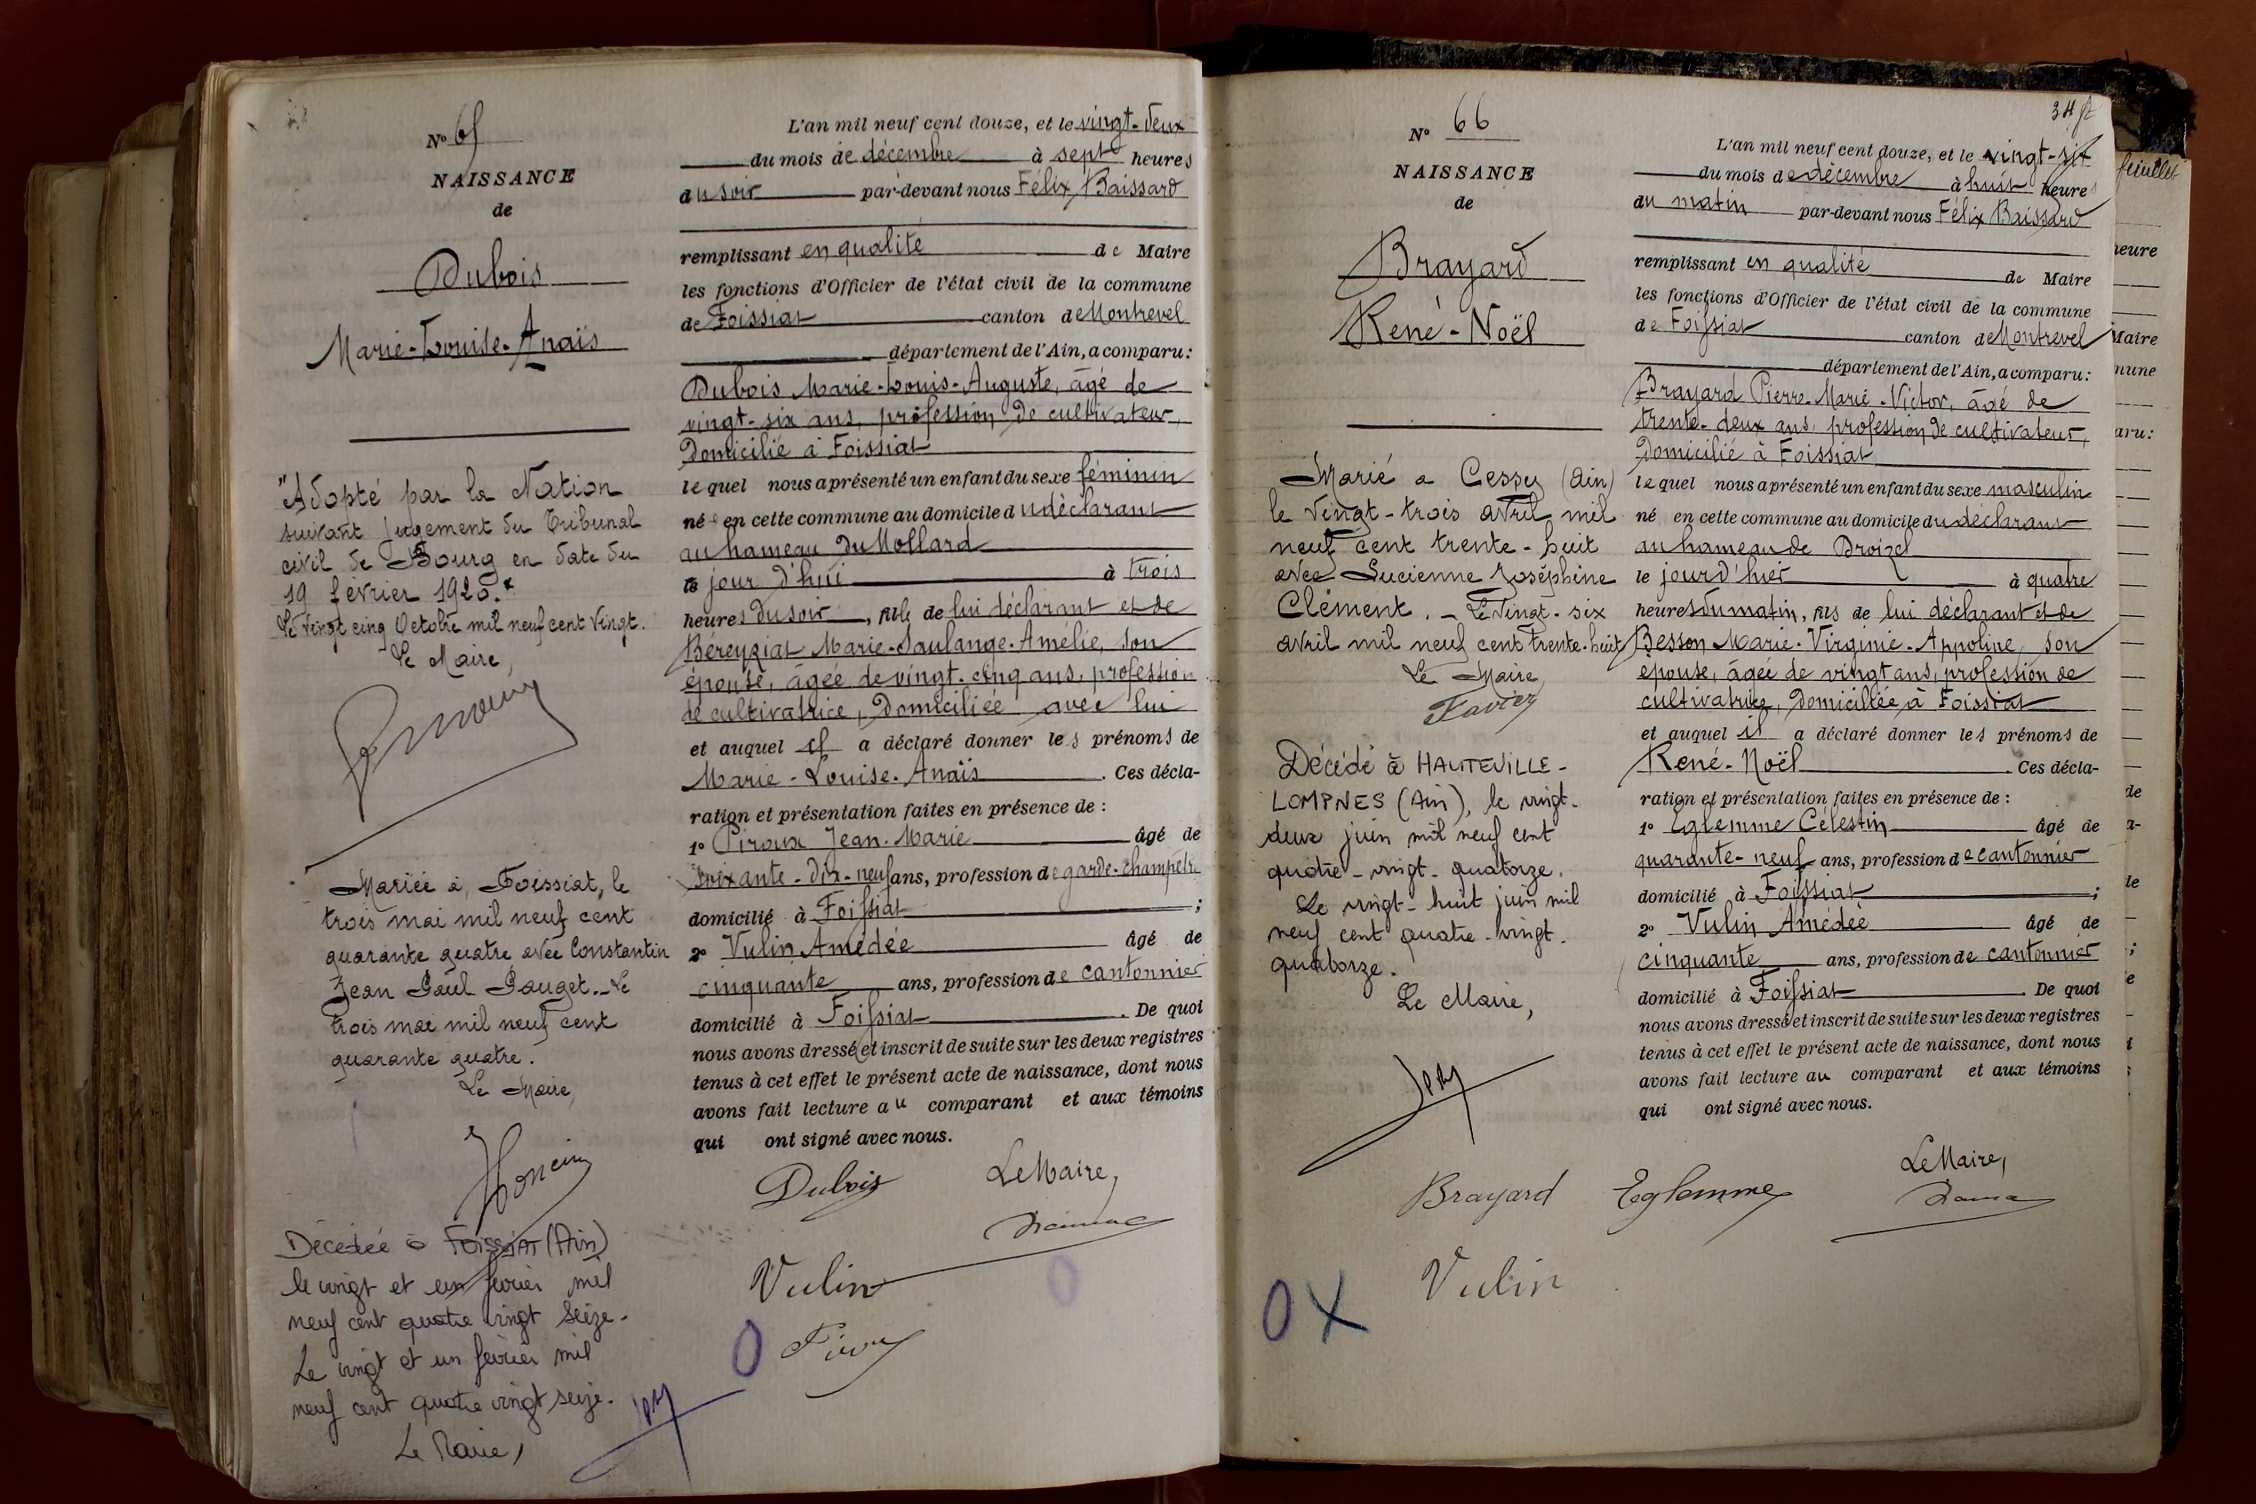 No 65
NAISSANCE
de
Dubois
Marie-Louise-Anaïs
"Adopté par la Nation
suivant jugement du Tribunal
civil de Bourg en date du
19 février 1920."
Le vingt cinq Octobre mil neuf cent vingt.
Le Maire,
Mariée à Foissiat, le
trois mai mil neuf cent
quarante quatre avec Constantin
Jean Paul Pauget._ Le
trois mai mil neuf cent
quarante quatre.
Le Maire,
Décédée à FOISSIAT (Ain)
le vingt et un février mil
neuf cent quatre vingt seize.
Le vingt et un février mil
neuf cent quatre vingt seize.
Le Maire,
L'an mil neuf cent douze, et le vingt-deux
du mois de décembre à sept heures
du soir par-devant nous Félix Baissard
remplissant en qualité de Maire
les fonctions d'Officier de l'état civil de la commune
de Foissiat canton de Montrevel
département de l'Ain, a comparu:
Dubois Marie-Louis-Auguste, âgé de
vingt-six ans, profession de cultivateur,
domicilié à Foissiat
lequel nous a présenté un enfant du sexe féminin
née en cette commune au domicile du déclarant
au hameau du Mollard
le jour d'hui à trois
heures du soir, fille de lui déclarant et de
Béreyziat Marie-Saulange-Amélie, son
épouse, âgée de vingt-cinq ans, profession
de cultivatrice, domiciliée avec lui
et auquel il a déclaré donner les prénoms de
Marie-Louise-Anaïs. Ces décla-
ration et présentation faites en présence de :
1o Piroux Jean-Marie âgé de
soixante-dix-neuf ans, profession de garde-champêtre
domicilié à Foissiat ;
2o Vulin Amédée âgé de
cinquante ans, profession de cantonnier
domicilié à Foissiat. De quoi
nous avons dressé et inscrit de suite sur les deux registres
tenus à cet effet le présent acte de naissance, dont nous
avons fait lecture au comparant et aux témoins
qui ont signé avec nous.
Dubois Le Maire,
Vulin
No 66
NAISSANCE
de
Brayard
René-Noël
Marié a Cessy (Ain)
le Vingt-trois avril mil
neuf cent trente-huit
avec Lucienne Joséphine
Clément._ Le Vingt-six
avril mil neuf cent trente-huit
Le Maire
Favier
Décédé à HAUTEVILLE-
LOMPNES (Ain), le vingt-
deux juin mil neuf cent
quatre-vingt-quatorze.
Le vingt-huit juin mil
neuf cent quatre-vingt-
quatorze.
Le Maire,
L'an mil neuf cent douze, et le vingt-six
du mois de décembre à huit heures
du matin par-devant nous Félix Baissard
remplissant en qualité de Maire
les fonctions d'Officier de l'état civil de la commune
de Foissiat canton de Montrevel
département de l'Ain, a comparu:
Brayard Pierre-Marie-Victor, âgé de
trente-deux ans, profession de cultivateur,
domicilié à Foissiat
lequel nous a présenté un enfant du sexe masculin
né en cette commune au domicile du déclarant
au hameau de Broizel
le jour d'hier à quatre
heures du matin, fils de lui déclarant et de
Besson Marie-Virginie-Appoline, son
épouse, âgée de vingt ans, profession de
cultivatrice, domiciliée à Foissiat
et auquel il a déclaré donner les prénoms de
René-Noël. Ces décla-
ration et présentation faites en présence de :
1o Eglemme Célestin âgé de
quarante-neuf ans, profession de cantonnier
domicilié à Foissiat ;
2o Vulin Amédée âgé de
cinquante ans, profession de cantonnier
domicilié à Foissiat. De quoi
nous avons dressé et inscrit de suite sur les deux registres
tenus à cet effet le présent acte de naissance, dont nous
avons fait lecture au comparant et aux témoins
qui ont signé avec nous.
Le Maire,
Brayard Eglemme
Vulin
O X
feuillet
heure
Maire
mune
aru:
de
a-
le
;
e